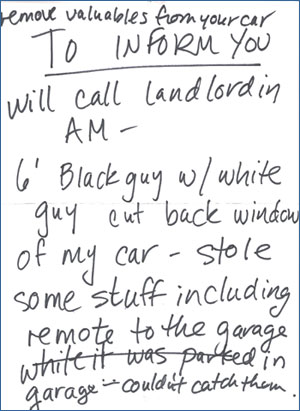 remove valuables from your car
TO INFORM YOU
will call landlord in
AM -
6' Black guy w/ white
guy cut back window
of my car - stole
some stuff including
remote to the garage
while it was parked in
garage - couldn't catch them.